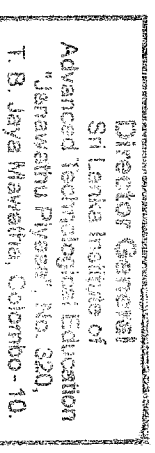 Director General
Sri Lanka Institute of
Advanced Technological Education
"Janawathu Piyasa", No. 320,
T. B. Jaya Mawatha, Colombo - 10.